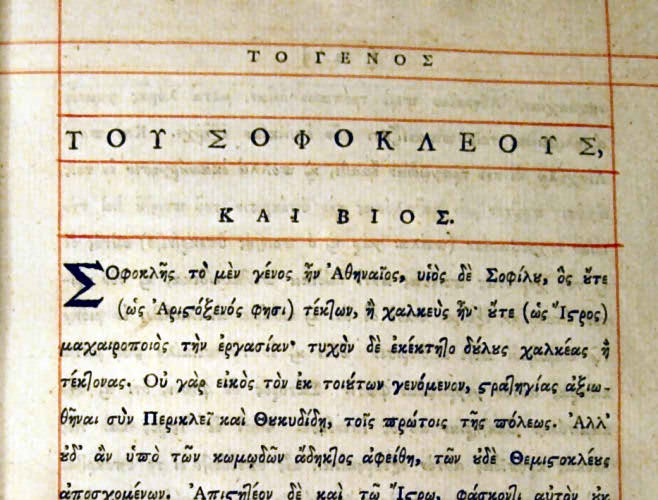 ΤΟ ΓΕΝΟΣ
ΤΟΥ ΣΟΦΟΚΛΕΟΥΣ,
ΚΑΙ ΒΙΟΣ.
ΣΟφοκλῆς τὸ μὲν γένος ἦν Ἀθηναῖος, υἱὸς δὲ Σοφίλȣ, ὃς ȣ̓́τε
(ὡς Ἀριϛόξενός φησι) τέκτων, ἢ χαλκεὺς ἦν· ȣ̓́τε (ὡς Ἴϛρος)
μαχαιροποιὸς τὴν ἐργασίαν· τυχὸν δὲ ἐκέκτητο δȣ́λȣς χαλκέας ἢ
τέκτονας. Οὐ γὰρ εἰκὸς τὸν ἐκ τοιȣ́των γενόμενον, ϛρατηγίας ἀξιω-
θῆναι σὺν Περικλεῖ καὶ Θυκυδίδῃ, τοῖς πρώτοις τῆς πόλεως. Ἀλλ'
ȣ̓δ' ἂν ὑπὸ τῶν κωμῳδῶν ἄδηκτος ἀφείθη, τῶν ȣ̓δὲ Θεμιϛοκλέους
ἀποσχομένων. Ἀπιϛητέον δὲ καὶ τῷ Ἴϛρῳ, φάσκοντι αὐτὸν ȣ̓κ